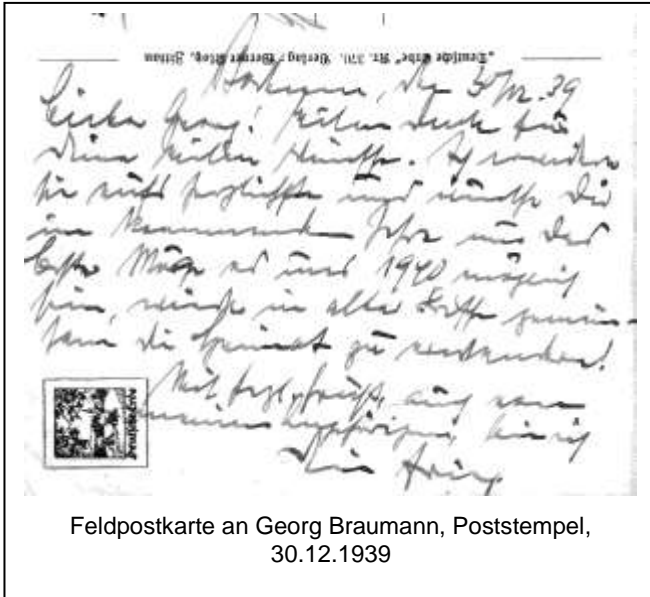 Verlag Werner
Bochum, den 39
Lieber Georg! Vielen Dank für
Deine lieben Wünsche. Ich erwidere
sie aufs herzlichste und wünsche Dir
im kommenden Jahre nur das
Beste. Möge es uns 1940 möglich
sein, wieder in alter Frische gemein-
sam die Heimat zu
Mit herzl. auch von
meinen Angehörigen, bin ich
Dein
Feldpostkarte an Georg Braumann, Poststempel,
30.12.1939